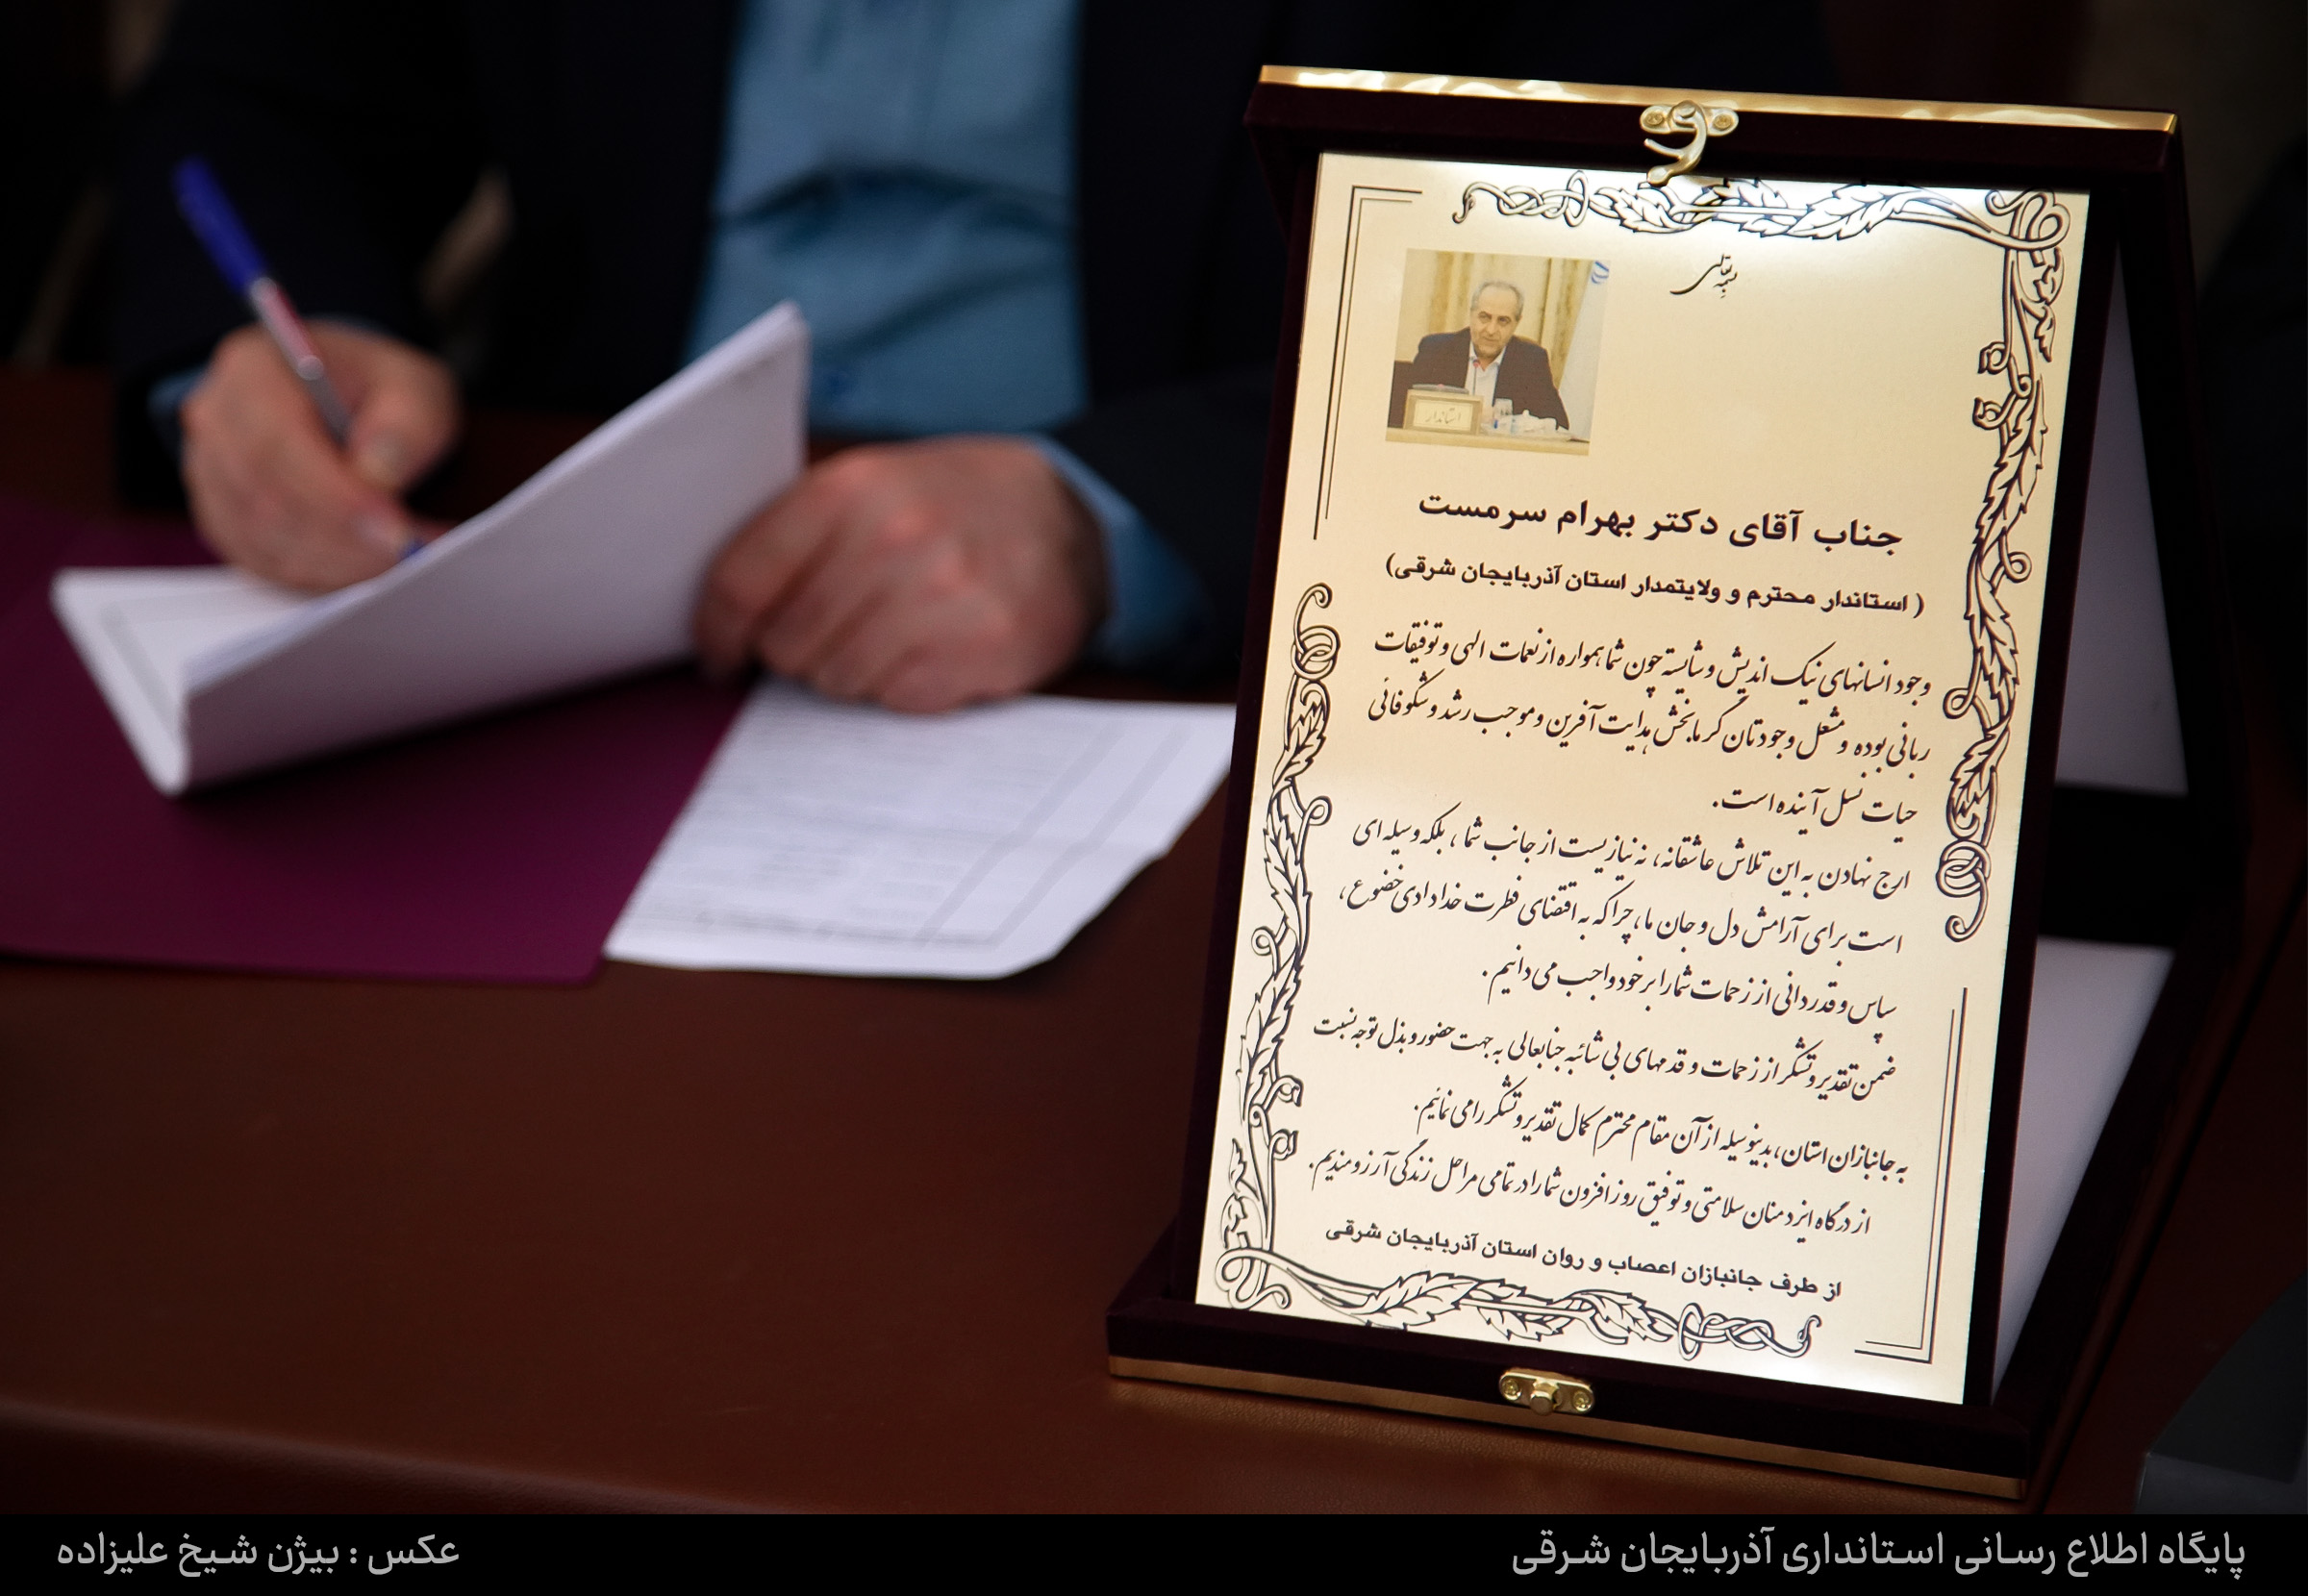 بسمه تعالی
استاندار
جناب آقای دکتر بهرام سرمست
( استاندار محترم و ولایتمدار استان آذربایجان شرقی)
وجود انسانهای نیک اندیش و شایسته چون شما همواره از نعمات الهی و توفیقات
ربانی بوده و مشعل وجودتان گرمابخش هدایت آفرین و موجب رشد و شکوفائی
حیات نسل آینده است.
ارج نهادن به این تلاش عاشقانه، نه نیازیست از جانب شما، بلکه وسیله ای
است برای آرامش دل و جان ما، چرا که به اقتضای فطرت خدادادی خضوع،
سپاس و قدردانی از زحمات شما را بر خود واجب می دانیم.
ضمن تقدیر و تشکر از زحمات و قدمهای بی شائبه جنابعالی به جهت حضور و بذل توجه نسبت
به جانبازان استان، بدینوسیله از آن مقام محترم کمال تقدیر و تشکر را می نمائیم.
از درگاه ایزد منان سلامتی و توفیق روز افزون شما را در تمامی مراحل زندگی آرزومندیم.
از طرف جانبازان اعصاب و روان استان آذربایجان شرقی
پایگاه اطلاع رسانی استانداری آذربایجان شرقی
عکس : بیژن شیخ علیزاده